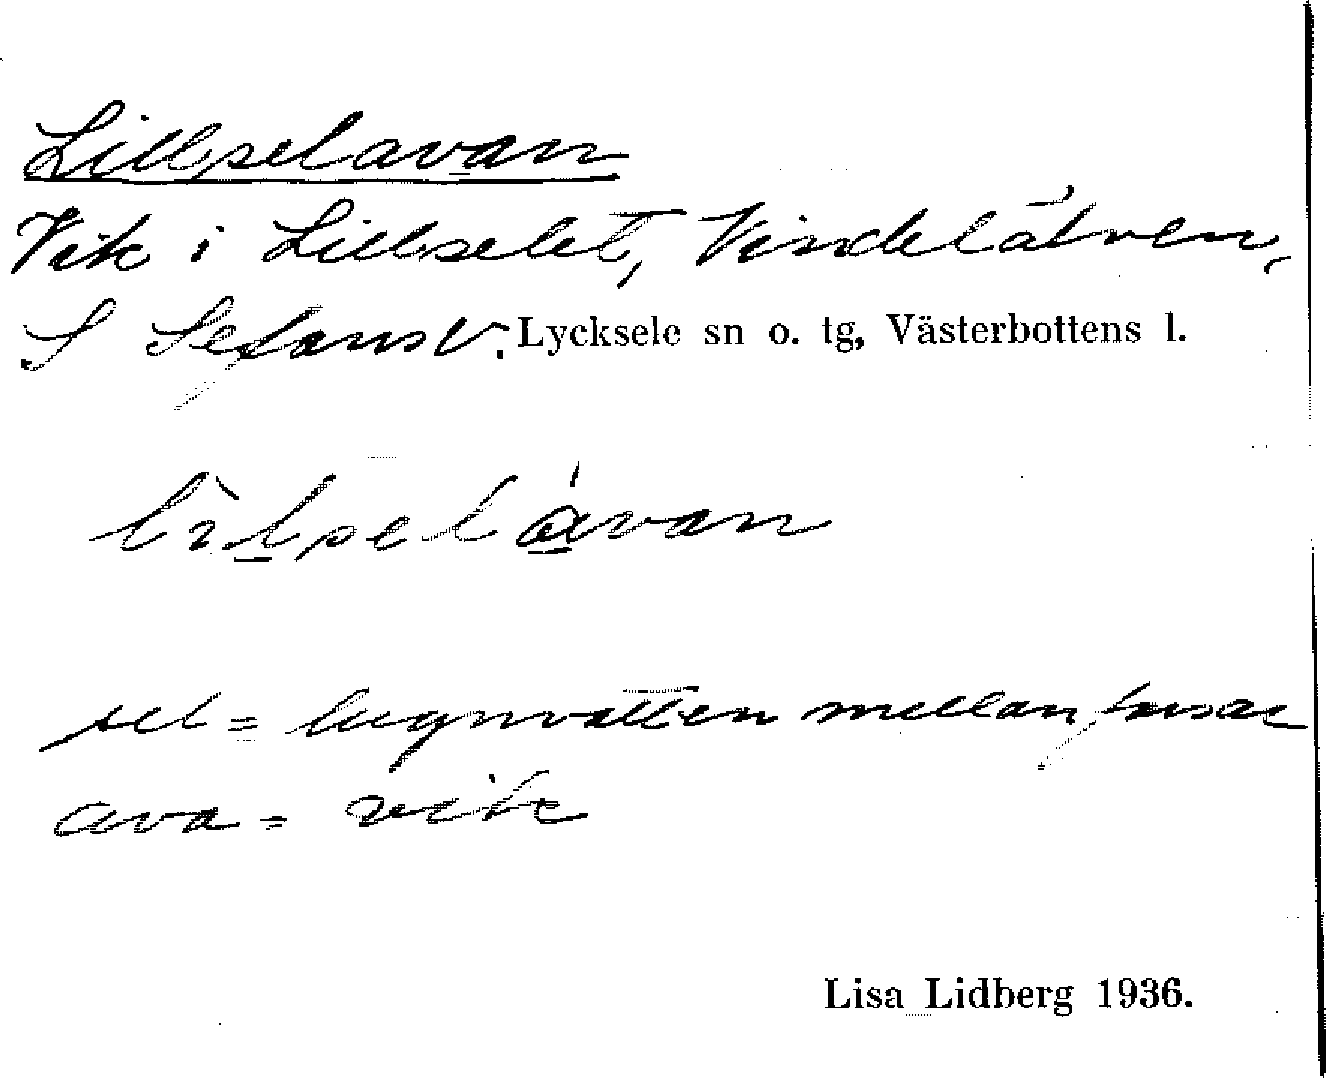 Lillselavan
Vik i Lillselet, Vindelälven,
S Lycksele sn o. tg, Västerbottens l.
lìlselávan
sel = lugnvatten mellan forsar
ava = vik
Lisa Lidberg 1936.